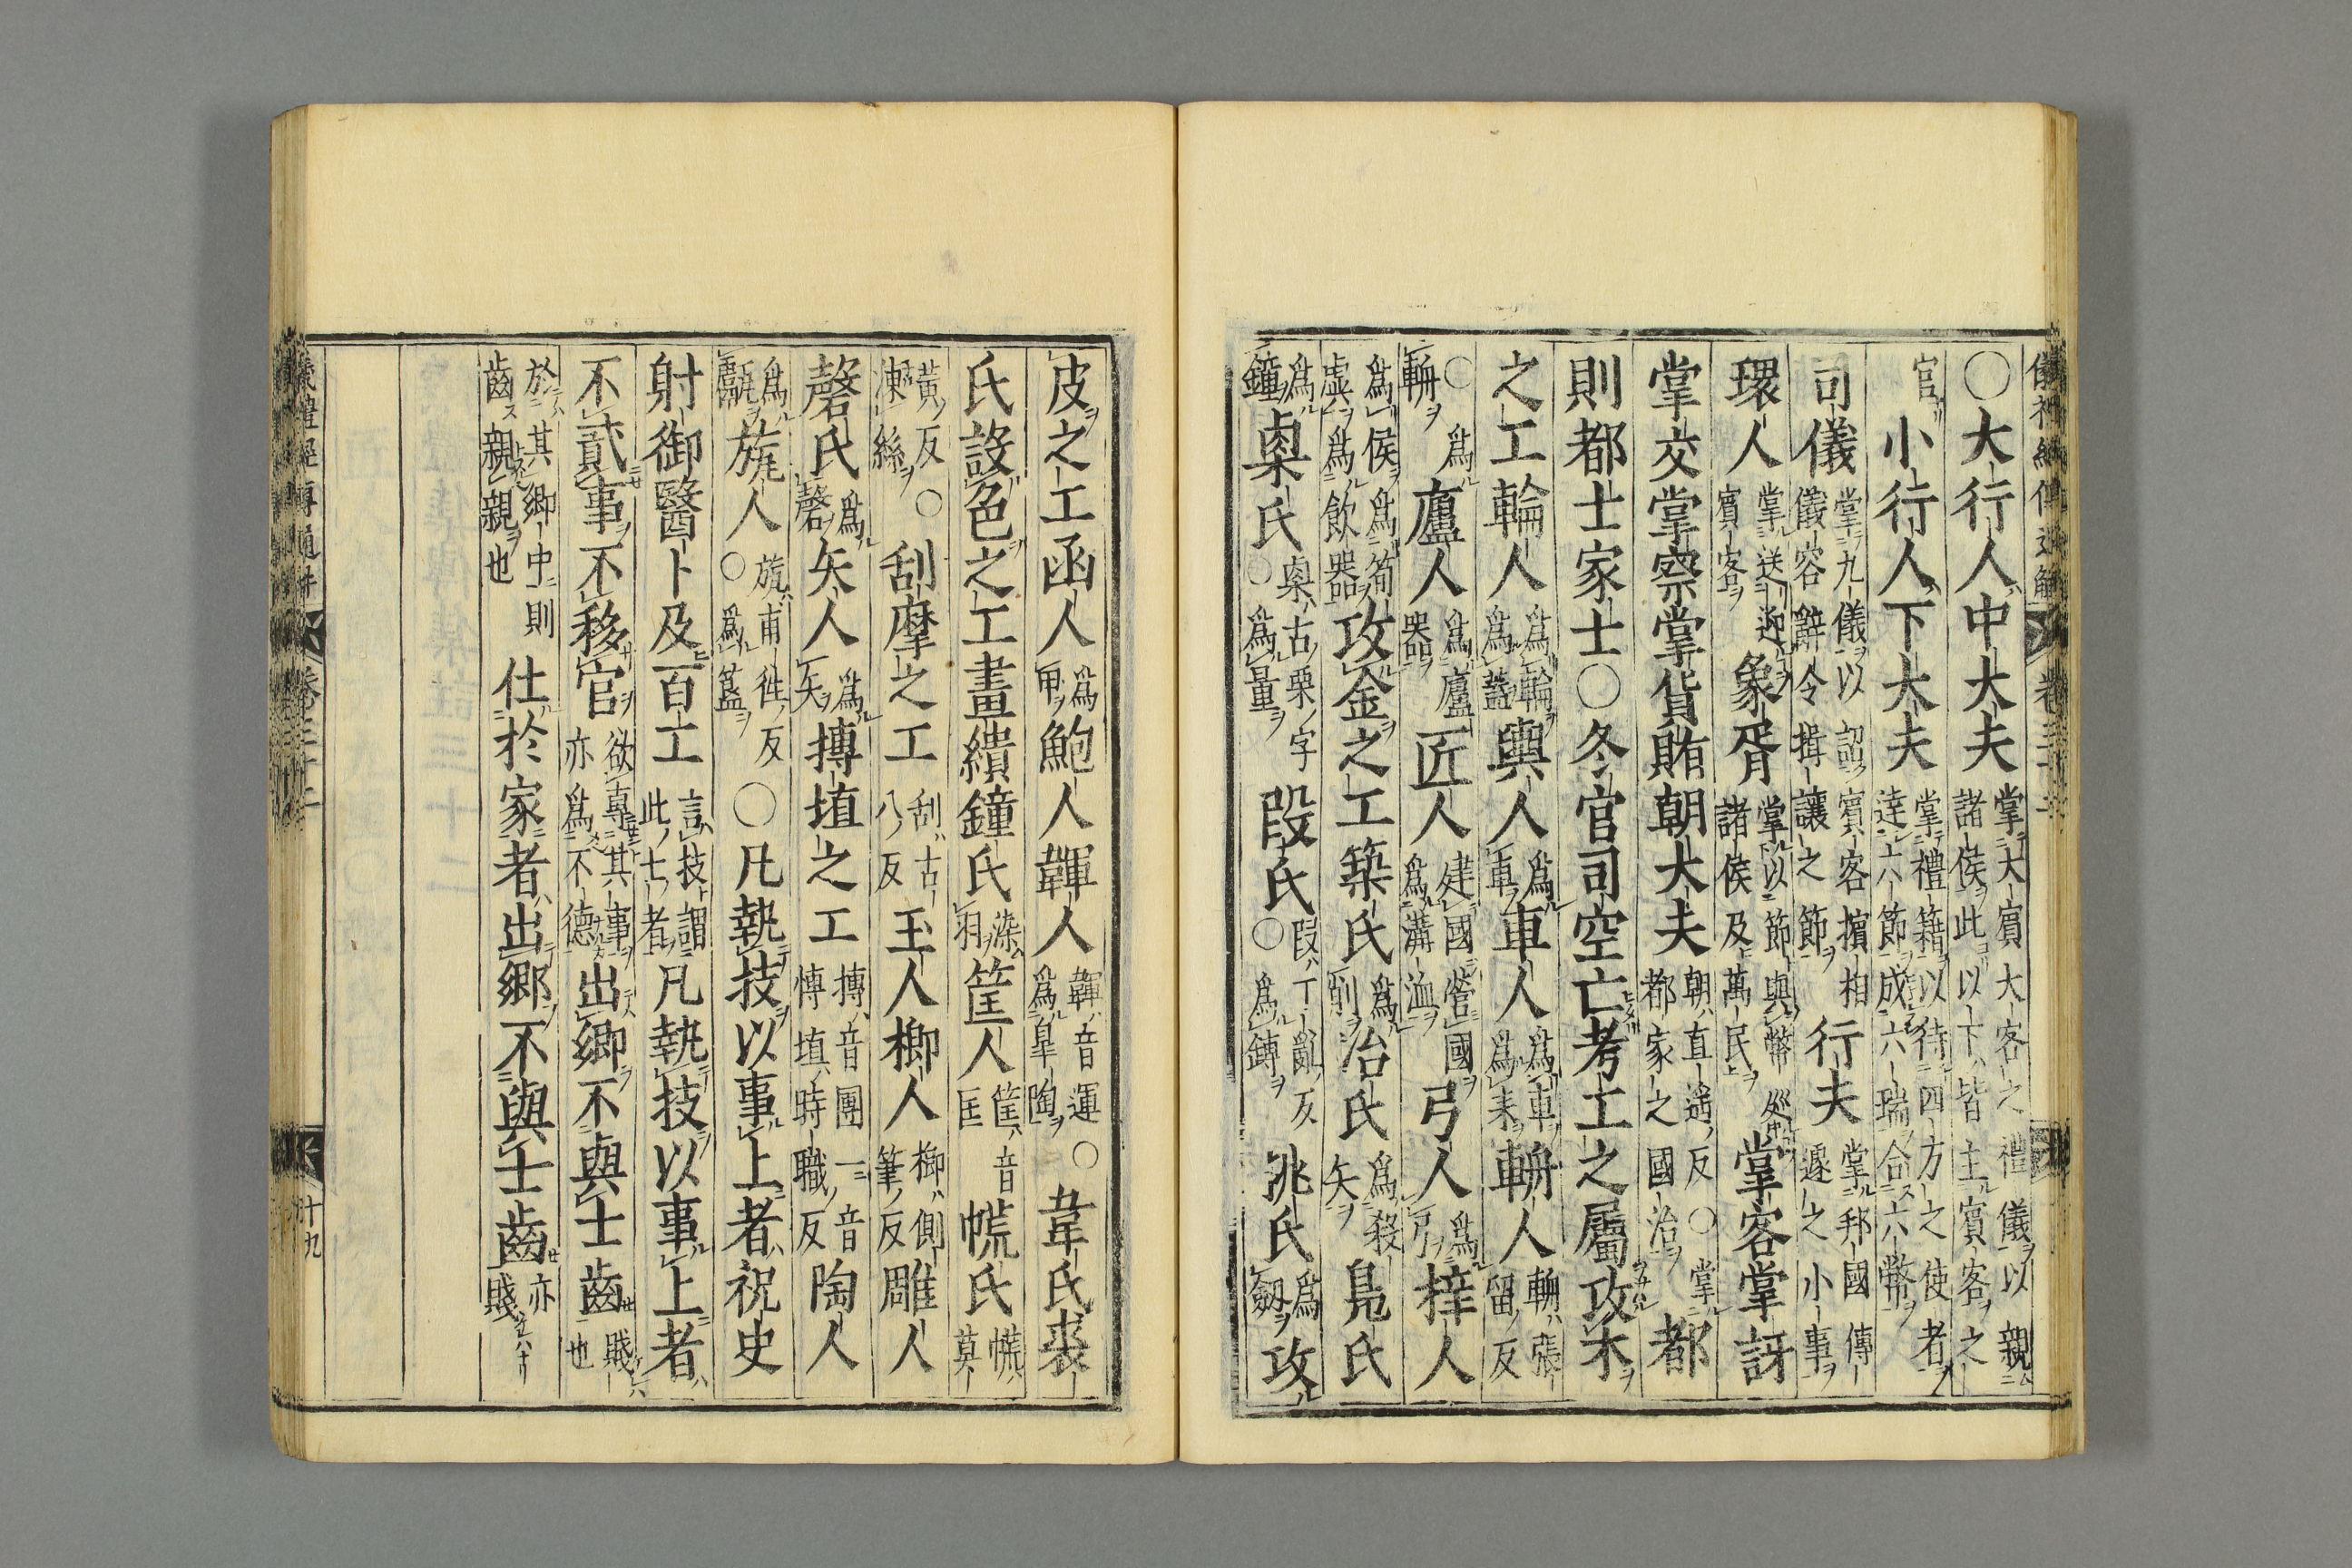 ○大行人中大夫掌大賓大客之禮儀以親諸侯此以下皆主賓客之
官小行人下大夫掌禮籍以待四方之使者達六節成六瑞合六幣
司儀掌九儀以詔賓客擯相儀容辭令揖讓之節行夫掌邦國傳遽之小事
環人掌送迎賓客象胥掌以節與幣諸侯及萬民掌客掌訝
掌交掌察掌貨賄朝大夫朝直遙反○掌都家之國治都
則都士家士○冬官司空亡考工之屬攻木
之工輪人爲輪爲蓋輿人爲車車人爲車爲耒輈人輈張留反
○爲輈廬人爲廬器匠人建國營國爲溝洫弓人爲弓梓人
爲侯爲筍虡爲飲器攻金之工築氏爲削冶氏爲殺矢鳧氏
爲鐘㮚氏㮚古栗字○爲量段氏段丁亂反○爲鎛桃氏爲劔攻
皮之工函人爲甲鮑人韗人韗音運○爲皐陶韋氏裘
氏設色之工畫繢鐘氏染羽筐人筐音匡㡛氏㡛莫
黃反○湅絲刮摩之工刮古八反玉人櫛人櫛側筆反雕人
磬氏爲磬矢人爲矢摶埴之工摶音團一音愽埴時職反陶人
爲甗旊人旊甫徃反○爲簋○凡執技以事上者祝史
射御醫卜及百工言技謂此七者凡執技以事上者
不貳事不移官欲專其事亦爲不德出鄉不與士齒賤也
於其鄉中則齒親親也仕於家者出鄉不與士齒亦賤
十九